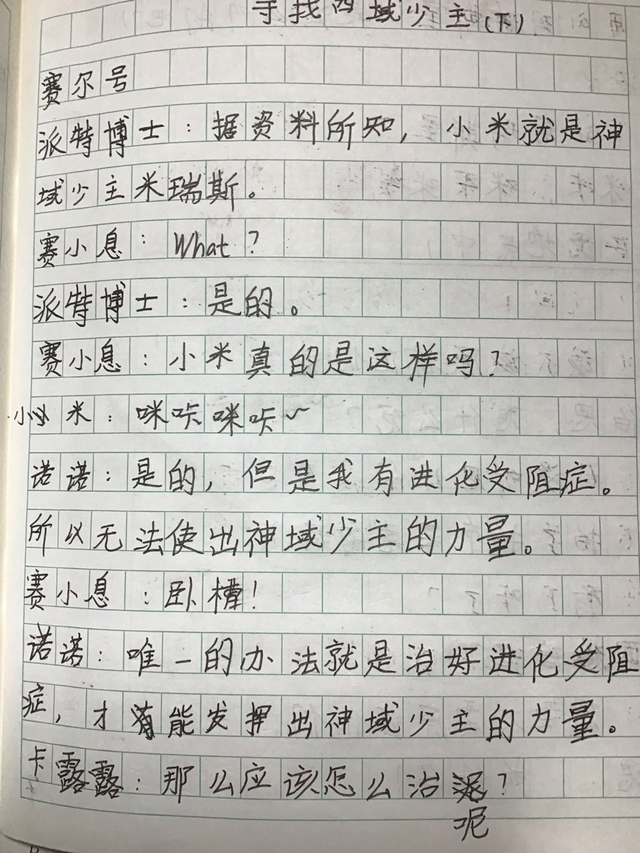 寻找西域少主(下)
赛尔号
派特博士：据资料所知，小米就是神
域少主米瑞斯。
赛小息：What？
派特博士：是的。
赛小息：小米真的是这样吗？
小米：咪咔咪咔～
诺诺：是的，但是我有进化受阻症。
所以无法使出神域少主的力量。
赛小息：卧槽！
诺诺：唯一的办法就是治好进化受阻
症，才能发挥出神域少主的力量。
卡露露：那么应该怎么治泥？
呢